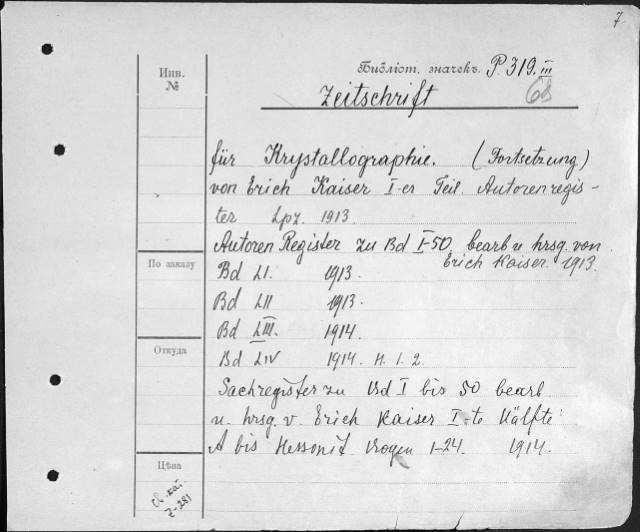 7.
Инв.
№
Библіот. значекъ. P. 319. III
68
Zeitschrift
für Krystallographie. (Fortsetzung)
von Erich Kaiser I-er Teil. Autorenregis-
ter Lpz. 1913.
Autoren Register zu Bd I-50, bearb u. hrsg. von
Erich Kaiser. 1913.
По заказу
Bd LI. 1913.
Bd LII 1913.
Bd LIII. 1914.
Откуда
Bd LIV 1914. H. 1. 2.
Sachregister zu Bd I bis 50 bearb
u. hrsg. v. Erich Kaiser I-te Hälfte:
A bis Hessonit Bogen 1-24. 1914.
Цѣна
7-281